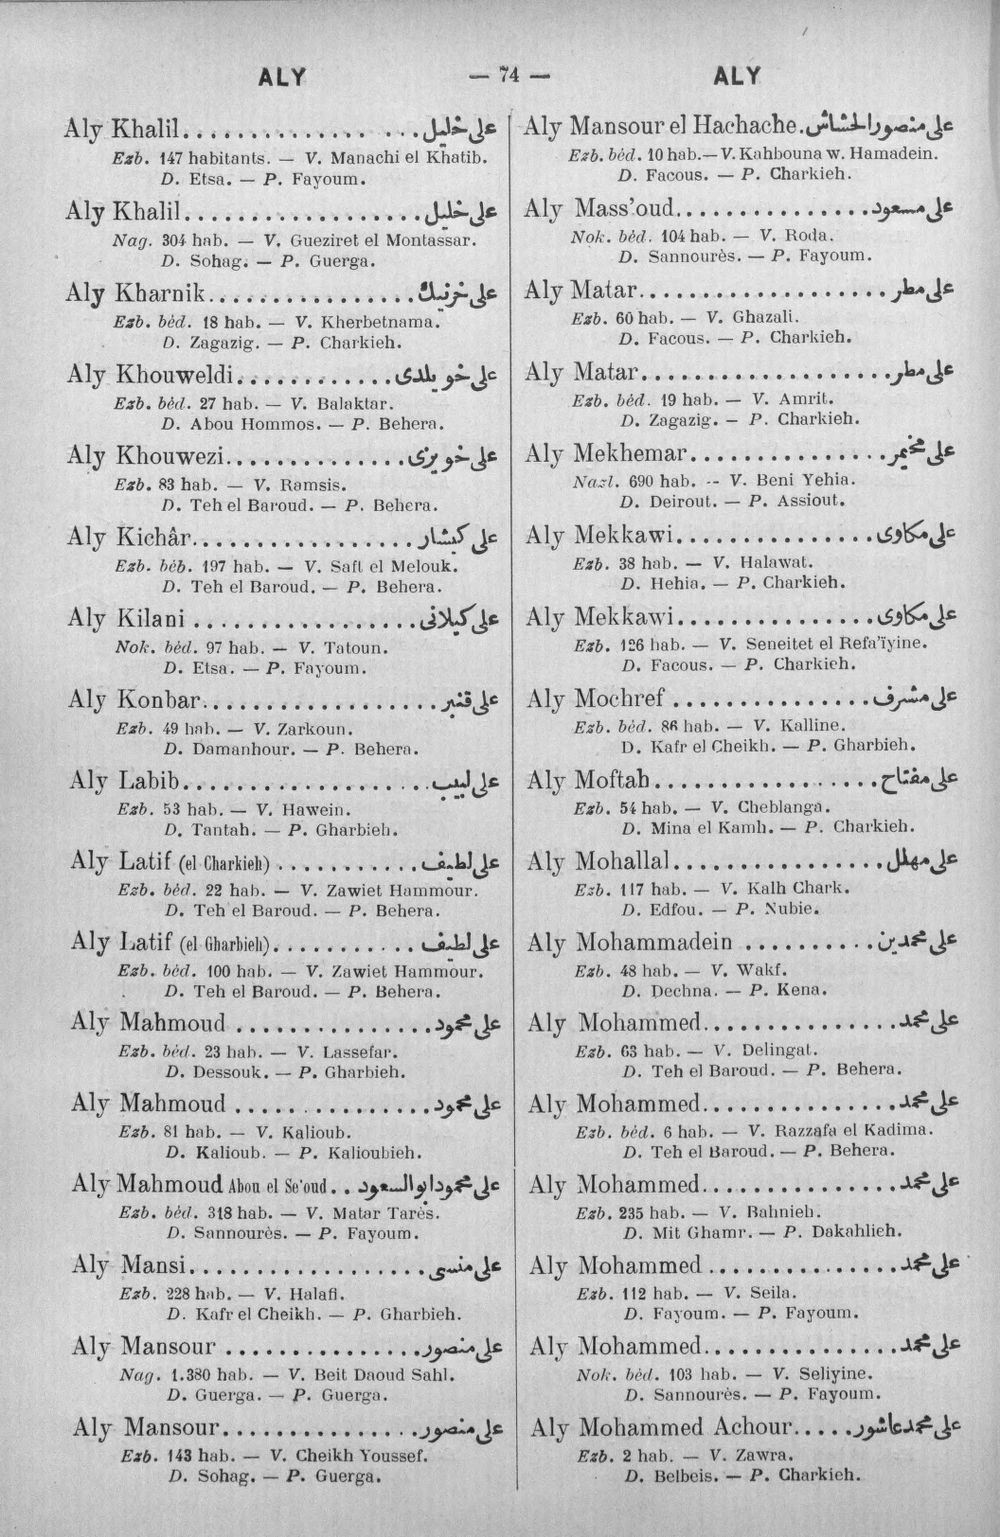 ALY — 74 — ALY
Aly Khalil. . . . . . . . . . . . . . . . . على خليل
Ezb. 147 habitants. — V. Manachi el Khatib.
D. Etsa. — P. Fayoum.
Aly Khalil. . . . . . . . . . . . . . . . . على خليل
Nag. 304 hab. — V. Gueziret el Montassar.
D. Sohag. — P. Guerga.
Aly Kharnik. . . . . . . . . . . . . . . على خرنيك
Ezb. béd. 18 hab. — V. Kherbetnama.
D. Zagazig. — P. Charkieh.
Aly Khouweldi. . . . . . . . . . . . على خويلدى
Ezb. béd. 27 hab. — V. Balaktar.
D. Abou Hommos. — P. Behera.
Aly Khouwezi. . . . . . . . . . . . . على خويزى
Ezb. 83 hab. — V. Ramsis.
D. Teh el Baroud. — P. Behera.
Aly Kichâr. . . . . . . . . . . . . . . . على كيشار
Ezb. béb. 197 hab. — V. Saft el Melouk.
D. Teh el Baroud. — P. Behera.
Aly Kilani . . . . . . . . . . . . . . . . على كيلانى
Nok. béd. 97 hab. — V. Tatoun.
D. Etsa. — P. Fayoum.
Aly Konbar. . . . . . . . . . . . . . . . . على قنبر
Ezb. 49 hab. — V. Zarkoun.
D. Damanhour. — P. Behera.
Aly Labib. . . . . . . . . . . . . . . . . . على لبيب
Ezb. 53 hab. — V. Hawein.
D. Tantah. — P. Gharbieh.
Aly Latif (el Charkieh) . . . . . . . . . . . على لطيف
Ezb. béd. 22 hab. — V. Zawiet Hammour.
D. Teh el Baroud. — P. Behera.
Aly Latif (el Gharbieh). . . . . . . . . . . على لطيف
Ezb. béd. 100 hab. — V. Zawiet Hammour.
D. Teh el Baroud. — P. Behera.
Aly Mahmoud . . . . . . . . . . . . . . . على محمود
Ezb. béd. 23 hab. — V. Lassefar.
D. Dessouk. — P. Gharbieh.
Aly Mahmoud . . . . . . . . . . . . . . . على محمود
Ezb. 81 hab. — V. Kalioub.
D. Kalioub. — P. Kalioubieh.
Aly Mahmoud Abou el Se'oud. . . على محمود ابو السعود
Ezb. béd. 318 hab. — V. Matar Tarès.
D. Sannourès. — P. Fayoum.
Aly Mansi. . . . . . . . . . . . . . . . . . على منسى
Ezb. 228 hab. — V. Halafi.
D. Kafr el Cheikh. — P. Gharbieh.
Aly Mansour . . . . . . . . . . . . . . . على منصور
Nag. 1.380 hab. — V. Beit Daoud Sahl.
D. Guerga. — P. Guerga.
Aly Mansour. . . . . . . . . . . . . . . على منصور
Ezb. 143 hab. — V. Cheikh Youssef.
D. Sohag. — P. Guerga.
Aly Mansour el Hachache. على منصور الحشاش
Ezb. béd. 10 hab. — V. Kahbouna w. Hamadein.
D. Facous. — P. Charkieh.
Aly Mass'oud. . . . . . . . . . . . . . . على مسعود
Nok. béd. 104 hab. — V. Roda.
D. Sannourès. — P. Fayoum.
Aly Matar. . . . . . . . . . . . . . . . . . . على مطر
Ezb. 60 hab. — V. Ghazali.
D. Facous. — P. Charkieh.
Aly Matar. . . . . . . . . . . . . . . . . . . على مطر
Ezb. béd. 19 hab. — V. Amrit.
D. Zagazig. — P. Charkieh.
Aly Mekhemar. . . . . . . . . . . . . . . على مخيمر
Nazl. 690 hab. -- V. Beni Yehia.
D. Deirout. — P. Assiout.
Aly Mekkawi. . . . . . . . . . . . . . . على مكاوى
Ezb. 38 hab. — V. Halawat.
D. Hehia. — P. Charkieh.
Aly Mekkawi. . . . . . . . . . . . . . . على مكاوى
Ezb. 126 hab. — V. Seneitet el Refa'ïyine.
D. Facous. — P. Charkieh.
Aly Mochref . . . . . . . . . . . . . . . على مشرف
Ezb. béd. 86 hab. — V. Kalline.
D. Kafr el Cheikh. — P. Gharbieh.
Aly Moftah . . . . . . . . . . . . . . . . . على مفتاح
Ezb. 54 hab. — V. Cheblanga.
D. Mina el Kamh. — P. Charkieh.
Aly Mohallal. . . . . . . . . . . . . . . . على مهلل
Ezb. 117 hab. — V. Kalh Chark.
D. Edfou. — P. Nubie.
Aly Mohammadein . . . . . . . . . . على محمدين
Ezb. 48 hab. — V. Wakf.
D. Dechna. — P. Kena.
Aly Mohammed. . . . . . . . . . . . . . . على محمد
Ezb. 63 hab. — V. Delingat.
D. Teh el Baroud. — P. Behera.
Aly Mohammed. . . . . . . . . . . . . . . على محمد
Ezb. béd. 6 hab. — V. Razzafa el Kadima.
D. Teh el Baroud. — P. Behera.
Aly Mohammed. . . . . . . . . . . . . . . على محمد
Ezb. 235 hab. — V. Bahnieh.
D. Mit Ghamr. — P. Dakahlieh.
Aly Mohammed . . . . . . . . . . . . . . . على محمد
Ezb. 112 hab. — V. Seila.
D. Fayoum. — P. Fayoum.
Aly Mohammed. . . . . . . . . . . . . . . على محمد
Nok. béd. 103 hab. — V. Seliyine.
D. Sannourès. — P. Fayoum.
Aly Mohammed Achour. . . . . على محمد عاشور
Ezb. 2 hab. — V. Zawra.
D. Belbeis. — P. Charkieh.